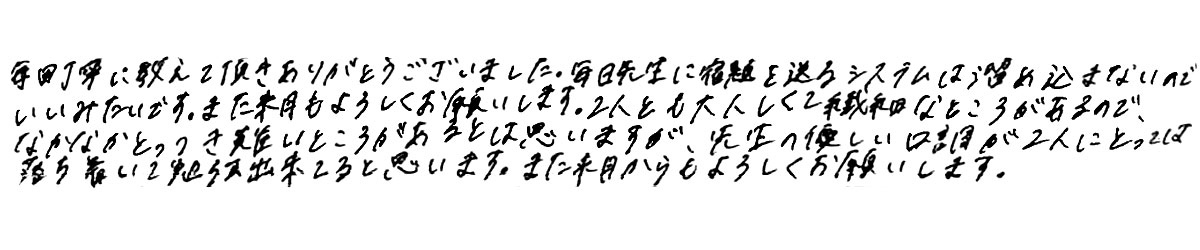 毎回丁寧に教えて頂きありがとうございました。毎日先生に宿題を送るシステムは溜め込まないので
いいみたいです。また来月もよろしくお願いします。2人とも大人しくて繊細なところがあるので、
なかなかとっつき難いところがあるとは思いますが、先生の優しい口調が2人にとっては
落ち着いて勉強出来てると思います。また来月からもよろしくお願いします。